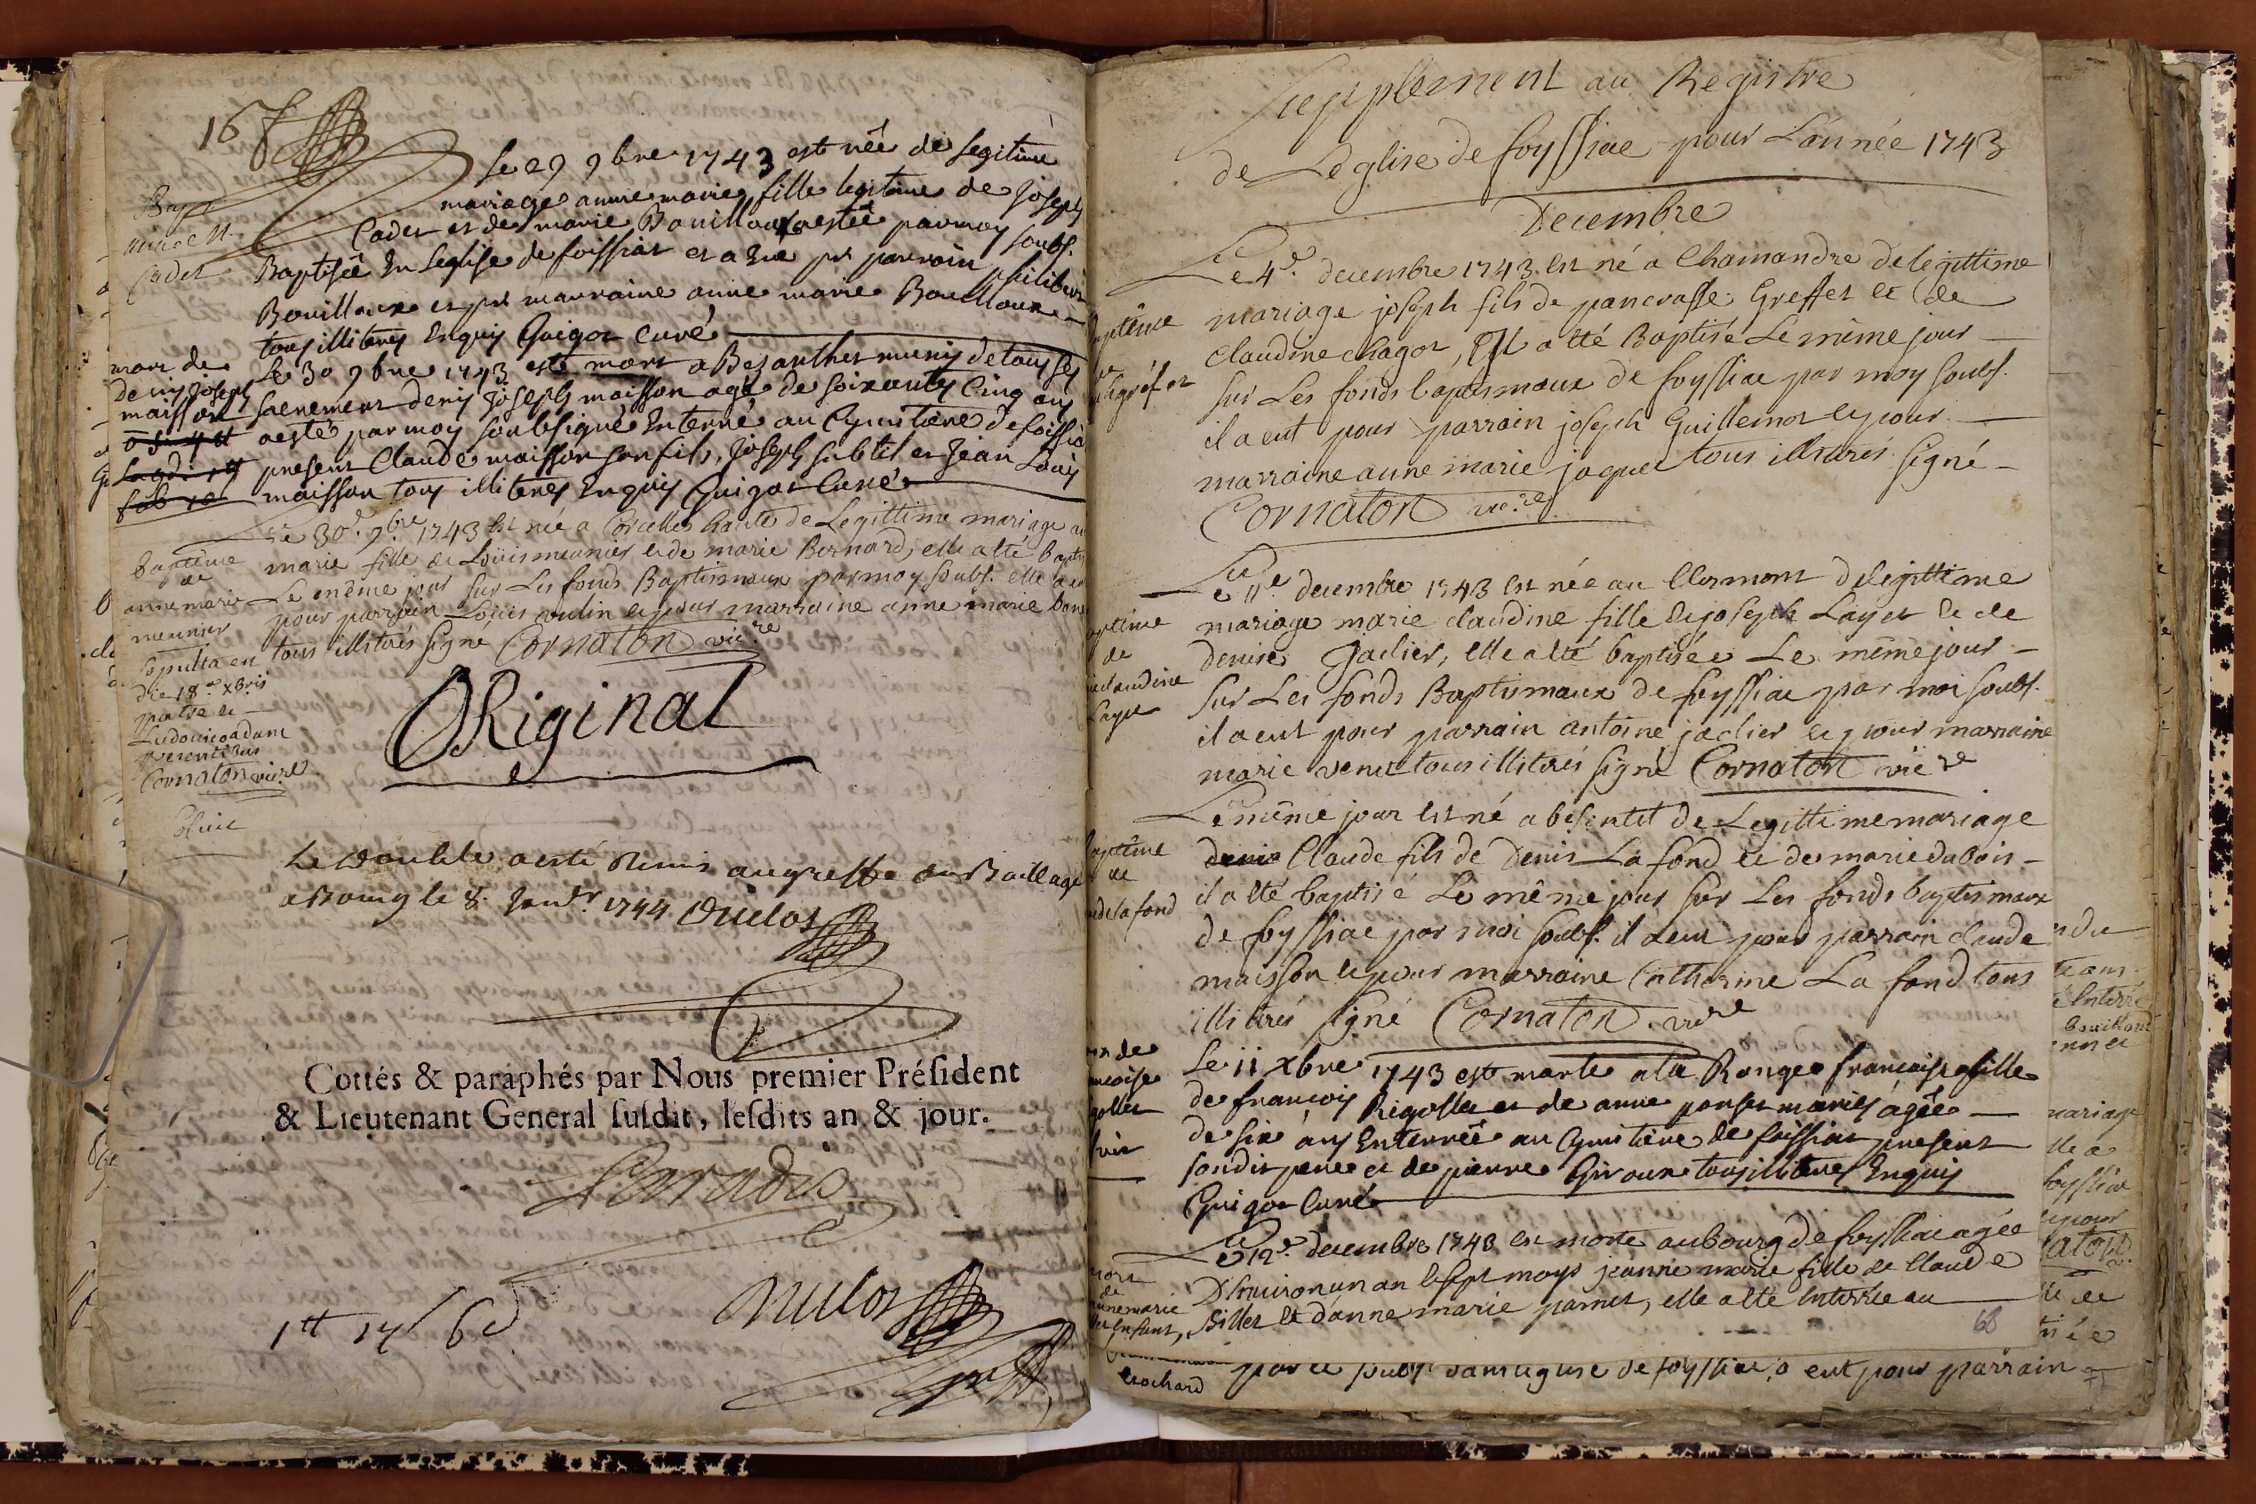 168
Le 29 9bre 1743 est née de legitime
mariage anne marie fille legitime de Joseph
Cadet et de marie Bouilloux a esté par moy soubs.
Baptisée En leglise de foissiat et a Eue pr parrain philibert
Bouilloux et pr marraine anne marie Bouilloux
tous illiterés Enquis Guigot curé
Cadet
mort de
denis Joseph
maisson
Le 30 9bre 1743 est mort a Bezanthet munis de tous ses
sacremens denis Joseph maisson agé de soixante Cinq ans
a esté par moy soubsigné Enterré au Cymitiere de foissia
present Claude maisson son fils, Joseph subtil et Jean Louis
maisson tous illiterés Enquis Guigot Curé
baptême
de
anne marie
meunier
Le 30e. 9bre. 1743 Est née a Corcelles haute de Legittime mariage
marie fille de Loüis meunier et de marie Bernard, elle a eté
Le même jour sur Les fonds Baptismaux par moy soubs. elle
pour parrain Loüis et pour marraine anne marie
tous illiterés signé Cornaton vicre
sepulta est
die 18a xbris
patre et
Ludovico adam
presentibus
Cornaton vicre
ORiginal
Le double a esté Remis au greffe du Baillage
a Bourg le 8. Janvr 1744 Duclos
Cottés & paraphés par Nous premier Président
& Lieutenant General susdit, lesdits an & jour.
Duclos
1tt 17s 6d
Supplement au Registre
de Leglise de foyssiac pour Lánnée 1743
Decembre
Le 4e. decembre 1743. Est né a Chamandre de legittime
mariage joseph fils de pancrasse Greffet et de
Claudine chagot, Il a eté Baptisé Le même jour
sur Les fonds baptismaux de foyssiac par moy soubs.
il a eut pour parrain joseph Guillemot et pour
marraine anne marie jaquet tous illiterés signé
Cornaton vicre
Le 11e. decembre 1743 Est née au Clermont de legittime
mariage marie claudine fille de joseph Layet et de
denise Jaclier, elle a eté baptisée Le même jour
sur Les fonds Baptismaux de foyssiac par moi soubs.
il a eut pour parrain antoine jaclier et pour marraine
marie venet tous illiterés signé Cornaton vicre
Le même jour Est né a besentet de Legittime mariage
denis Claude fils de Denis La fond et de marie dubois
il a eté baptisé Le même jour sur Les fonds baptismaux
de foyssiac par moi soubs. il a eut pour parrain claude
maisson et pour marraine Catherine La fond tous
illiterés signé Cornaton. vicre
Le 11 xbre 1743 est morte a la Ronge francoise fille
de francois Rigollet et de anne ponset mariés agée
de six ans Enterrée au Cymitiere de foissiat present
sondit pere et de pierre Giroux tous illiterés Enquis
Guigot Curé
Le 12e. decembre 1743 est morte au bourg de foyssiac agée
D'Environ un an et sept moys jeanne marie fille de Claude
Billet et d'anne marie parnet, elle a eté Enterrée au
68
par le soubs. dans leglise de foyssiac, a eut pour parrain
crochard